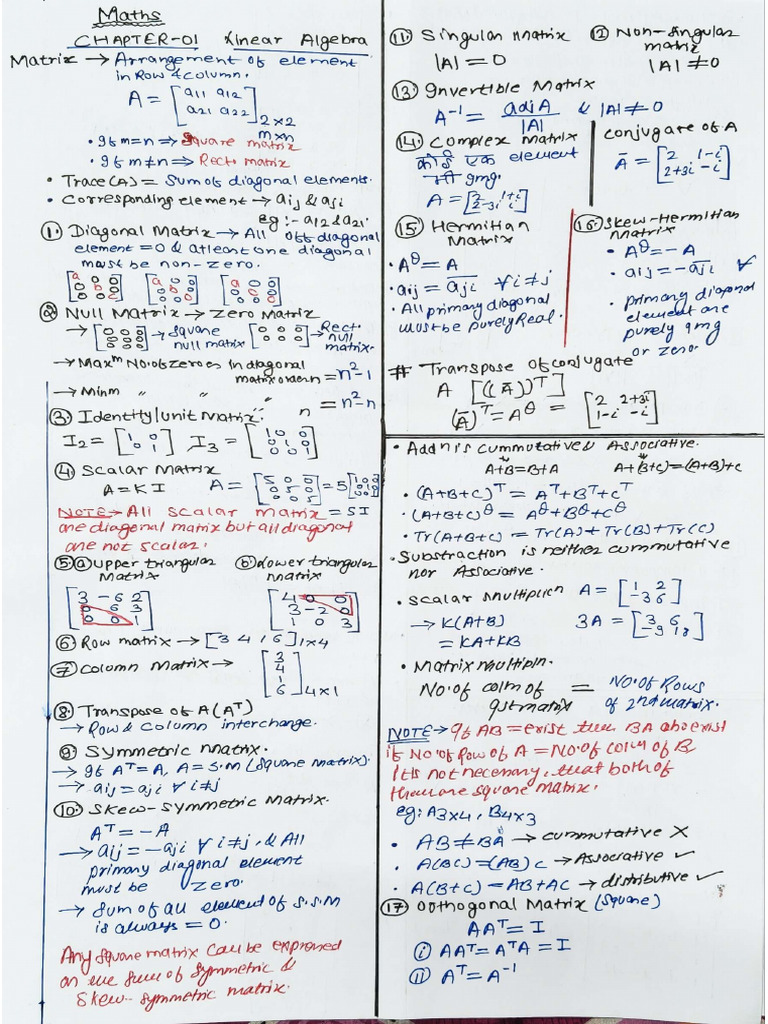 Maths
CHAPTER-01 Linear Algebra
Matrix → Arrangement of element
in Row & column.
A = [a11 a12
a21 a22] 2×2
m×n
• If m=n ⇒ Square matrix
• If m≠n ⇒ Rect. matrix
• Trace(A) = Sum of diagonal elements.
• Corresponding element → aij & aji
eg:- a12 & a21.
① Diagonal Matrix → All off diagonal
element = 0 & atleast one diagonal
must be non-zero.
[a 0 0
0 b 0
0 0 c]
② Null Matrix → Zero Matrix
→ [0 0 0
0 0 0
0 0 0] → Square
null matrix
[0 0 0
0 0 0] → Rect.
null
matrix.
→ Maxm No. of zeroes in diagonal
matrix order n = n²-1
→ Minm " " " n = n²-n
③ Identity/unit Matrix.
I2 = [1 0
0 1] I3 = [1 0 0
0 1 0
0 0 1]
④ Scalar Matrix
A = KI A = [5 0 0
0 5 0
0 0 5] = 5[1 0 0
0 1 0
0 0 1]
= 5I
NOTE → All scalar matrix
are diagonal matrix but all diagonal
are not scalar.
⑤ ⓐ Upper triangular
Matrix
[3 -6 2
0 6 3
0 0 1]
ⓑ Lower triangular
Matrix
[4 0 0
3 -2 0
1 0 3]
⑥ Row matrix → [3 4 1 6] 1×4
⑦ Column Matrix → [3
4
1
6] 4×1
⑧ Transpose of A (Aᵀ)
→ Row & Column interchange.
⑨ Symmetric Matrix.
→ If Aᵀ = A, A = S.M (Square Matrix).
→ aij = aji ∀ i≠j
⑩ Skew-Symmetric Matrix.
Aᵀ = -A
→ aij = -aji ∀ i≠j, & All
primary diagonal element
must be zero.
→ Sum of all element of S.S.M
is always = 0.
Any square matrix can be expressed
as the sum of symmetric &
Skew-symmetric matrix.
⑪ Singular Matrix
|A| = 0
⑫ Non-Singular
matrix
|A| ≠ 0
⑬ Invertible Matrix
A⁻¹ = adj A / |A| & |A| ≠ 0
⑭ Complex Matrix
कोई एक element
भी Img.
A = [2 1+i
2-3i i]
Conjugate of A
Ā = [2 1-i
2+3i -i]
⑮ Hermitian
Matrix
• Aᶿ = A
• aij = āji ∀ i≠j
• All primary diagonal
must be purely Real.
⑯ Skew-Hermitian
Matrix
• Aᶿ = -A
• aij = -āji ∀
• primary diagonal
element are
purely Img
or zero.
# Transpose of conjugate
A [((Ā))ᵀ]
(Ā)ᵀ = Aᶿ = [2 2+3i
1-i -i]
• Addn is cummutative & Associative.
A+B = B+A A+(B+C) = (A+B)+C
• (A+B+C)ᵀ = Aᵀ+Bᵀ+Cᵀ
• (A+B+C)ᶿ = Aᶿ+Bᶿ+Cᶿ
• Tr(A+B+C) = Tr(A)+Tr(B)+Tr(C)
• Substraction is neither cummutative
nor Associative.
• Scalar Multiplicn A = [1 2
-3 6]
→ K(A+B)
= KA+KB
3A = [3 6
-9 18]
• Matrix multipln.
No. of colm of
Ist matrix = No. of Rows
of 2nd matrix.
NOTE → If AB = exist then BA also exist
if No. of Row of A = No. of colm of B.
It is not necessary, that both of
them are square matrix.
eg: A3×4, B4×3
• AB ≠ BA → cummutative ✗
• A(BC) = (AB)C → Associative ✓
• A(B+C) = AB+AC → distributive ✓
⑰ Oothogonal Matrix (Square)
AAᵀ = I
ⓘ AAᵀ = AᵀA = I
ⓘⓘ Aᵀ = A⁻¹